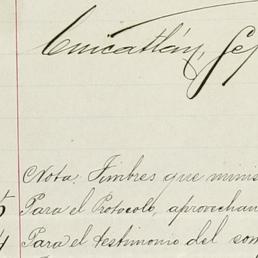 Cuicatlán, Sep
Nota: Timbres que minis
Para el Protocolo, aprovechan
Para el testimonio del som